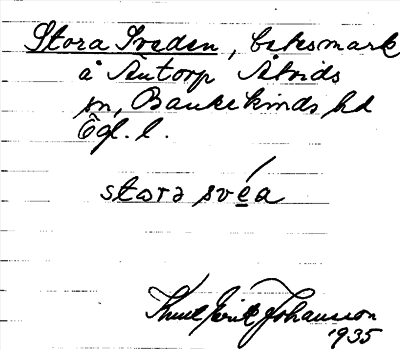 Stora Sveden, betesmark
å Äntorp Åtvids
sn, Bankekinds hd
Ögl. l.
stora svéa
Knut Erik Johansson
1935